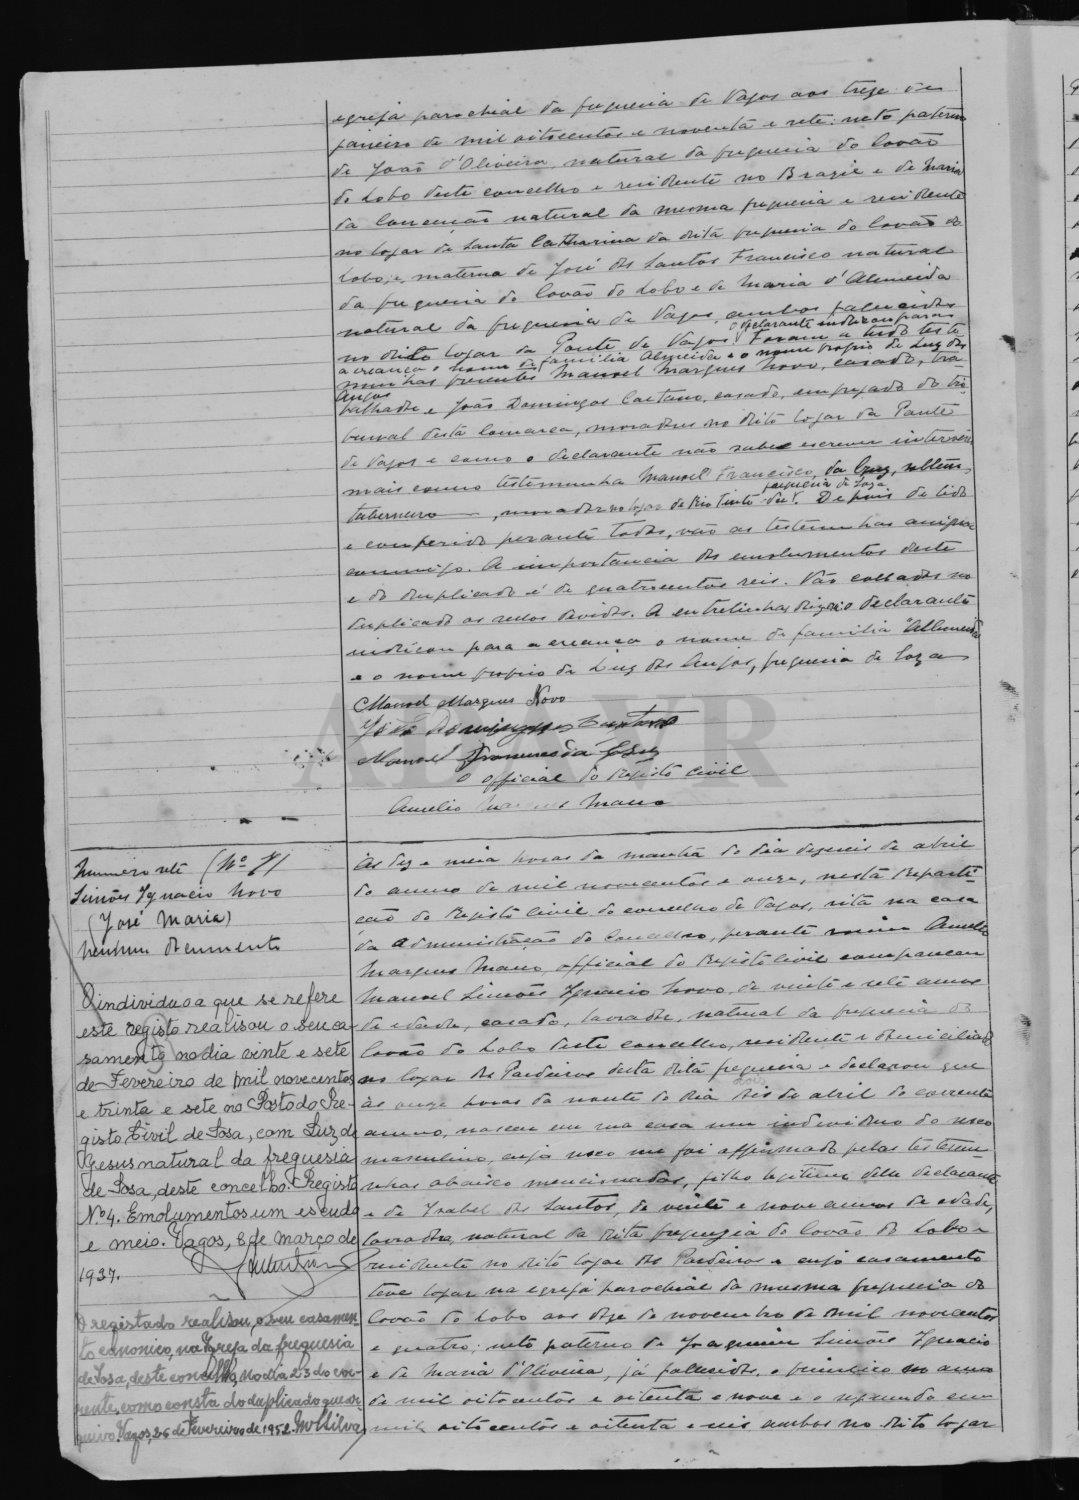 egreja parochial da freguesia de Vagos aos treze de
janeiro de mil oitocentos e noventa e sete: neto paterno
de João d'Oliveira, natural da freguesia do Covão
do Lobo deste concelho e residente no Brazil e de Maria
da Conceição natural da mesma freguesia e residente
no logar de Santa Catharina da dita freguesia do Covão do
Lobo; e, materna de José dos Santos Francisco natural
da freguesia do Covão do Lobo e de Maria d'Almeida
natural da freguesia de Vagos, ambos fallecidos
o declarante indicou para a
no dito logar da Ponte de Vagos. Foram a tudo teste
a creança o nome de familia Almeida e o nome proprio de Luz dos
munhas presentes Manoel Marques Novo, casado, tra-
Anjos
balhador e João Domingos Caetano, casado, empregado do tri-
bunal desta comarca, moradores no dito logar da Ponte
de Vagos e como o declarante não sabe escrever interveio
mais como testemunha Manoel Francisco da Cruz,
freguesia de Soza
taberneiro, morador no logar de Rio Tinto. Depois de lido
e conferido perante todos, vão as testemunhas assignar
commigo. A importancia dos emolumentos deste
e do duplicado é de quatrocentos reis. Vão collados no
duplicado os sellos devidos. A entrelinhas dizem o declarante
indicou para a creança o nome de familia "Almeida
e o nome proprio de Luz dos Anjos, freguesia de Soza
Manoel Marques Novo
João Domingos Caetano
Manoel Francisco da Cruz
O official do Registo Civil
Aurelio Marques Mano
ADAVR
Numero sete (Nº 7)
Simões Ignacio Novo
(José Maria)
Nenhum documento
O individuo a que se refere
este registo realisou o seu ca-
samento no dia vinte e sete
de Fevereiro de mil novecentos
e trinta e sete no Posto do Re-
gisto Civil de Sosa, com Luz de
Jesus natural da freguesia
de Sosa, deste concelho. Registo
Nº 4. Emolumentos um escudo
e meio. Vagos, 8 de Março de
1937.
O registado realisou o seu casamen-
to canonico, na Igreja da freguesia
de Sosa, deste concelho, no dia 23 do cor-
rente, como consta do duplicado que ar-
quivo. Vagos, 26 de Fevereiro de 1952. MSilva
Às dez e meia horas da manhã do dia dezeseis de abril
do anno de mil novecentos e onze, nesta Reparti-
ção do Registo Civil do concelho de Vagos, sita na casa
da Administração do Concelho, perante mim Aurelio
Marques Mano, official do Registo Civil compareceu
Manoel Simões Ignacio Novo, de vinte e sete annos
de edade, casado, lavrador, natural da freguesia do
Covão do Lobo deste concelho, residente e domiciliado
no logar dos Pardeiros desta dita freguesia e declarou que
às onze horas da noute do dia dois do abril do corrente
anno, nasceu em sua casa um individuo do sexo
masculino, cujo sexo me foi affirmado pelas testemu-
nhas abaixo mencionadas, filho legitimo delle declarante
e de Isabel dos Santos, de vinte e nove annos de edade,
lavradora, natural da dita freguezia do Covão do Lobo e
residente no dito logar dos Pardeiros e cujo casamento
teve logar na egreja parochial da mesma freguesia do
Covão do Lobo aos doze de novembro de mil novecentos
e quatro: neto paterno de Joaquim Simões Ignacio
e de Maria d'Oliveira, já fallecidos, o primeiro no anno
de mil oitocentos e oitenta e nove e o segundo em
mil oitocentos e oitenta e seis ambos no dito logar